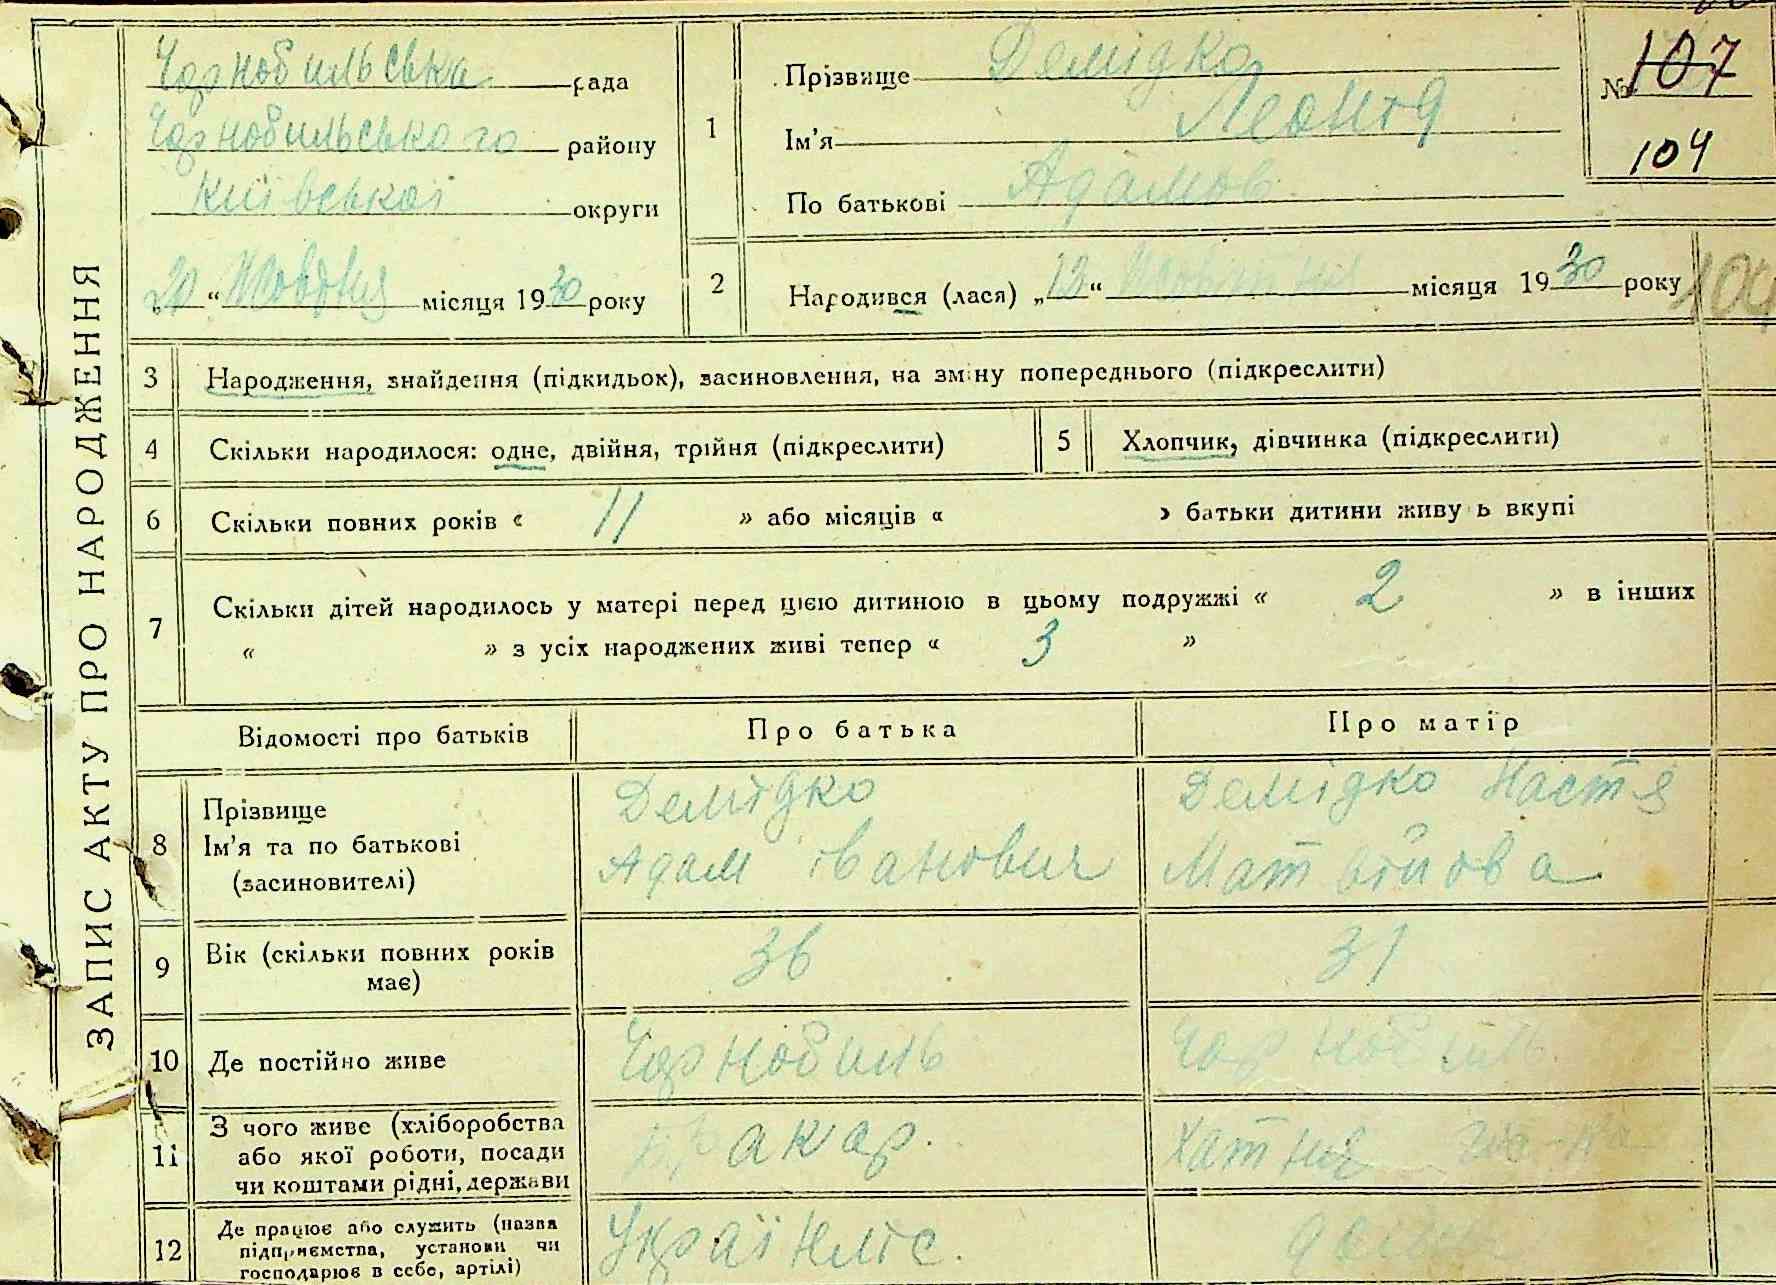 ЗАПИС АКТУ ПРО НАРОДЖЕННЯ
Чорнобильська рада
Чорнобильського району
Київської округи
„20“ Жовтня місяця 1930 року
1
Прізвище Демідко
Ім'я Леонтя
По батькові Адамов
№ 107
104
2
Народився (лася) „12“ Жовтня місяця 1930 року
104
3 Народження, знайдення (підкидьок), засиновлення, на зміну попереднього (підкреслити)
4 Скільки народилося: одне, двійня, трійня (підкреслити)
5 Хлопчик, дівчинка (підкреслити)
6 Скільки повних років « 11 » або місяців « » батьки дитини живуть вкупі
7 Скільки дітей народилось у матері перед цією дитиною в цьому подружжі « 2 » в інших
« » з усіх народжених живі тепер « 3 »
Відомості про батьків Про батька Про матір
8 Прізвище
Ім'я та по батькові
(засиновителі)
Демідко
Адам Іванович
Демідко Настя
Матвійова
9 Вік (скільки повних років
має)
36
31
10 Де постійно живе Чорнобиль Чорнобиль
11 З чого живе (хліборобства
або якої роботи, посади
чи коштами рідні, держави
Хатня
12 Де працює або служить (назва
підприємства, установи чи
господарює в себе, артілі)
дома